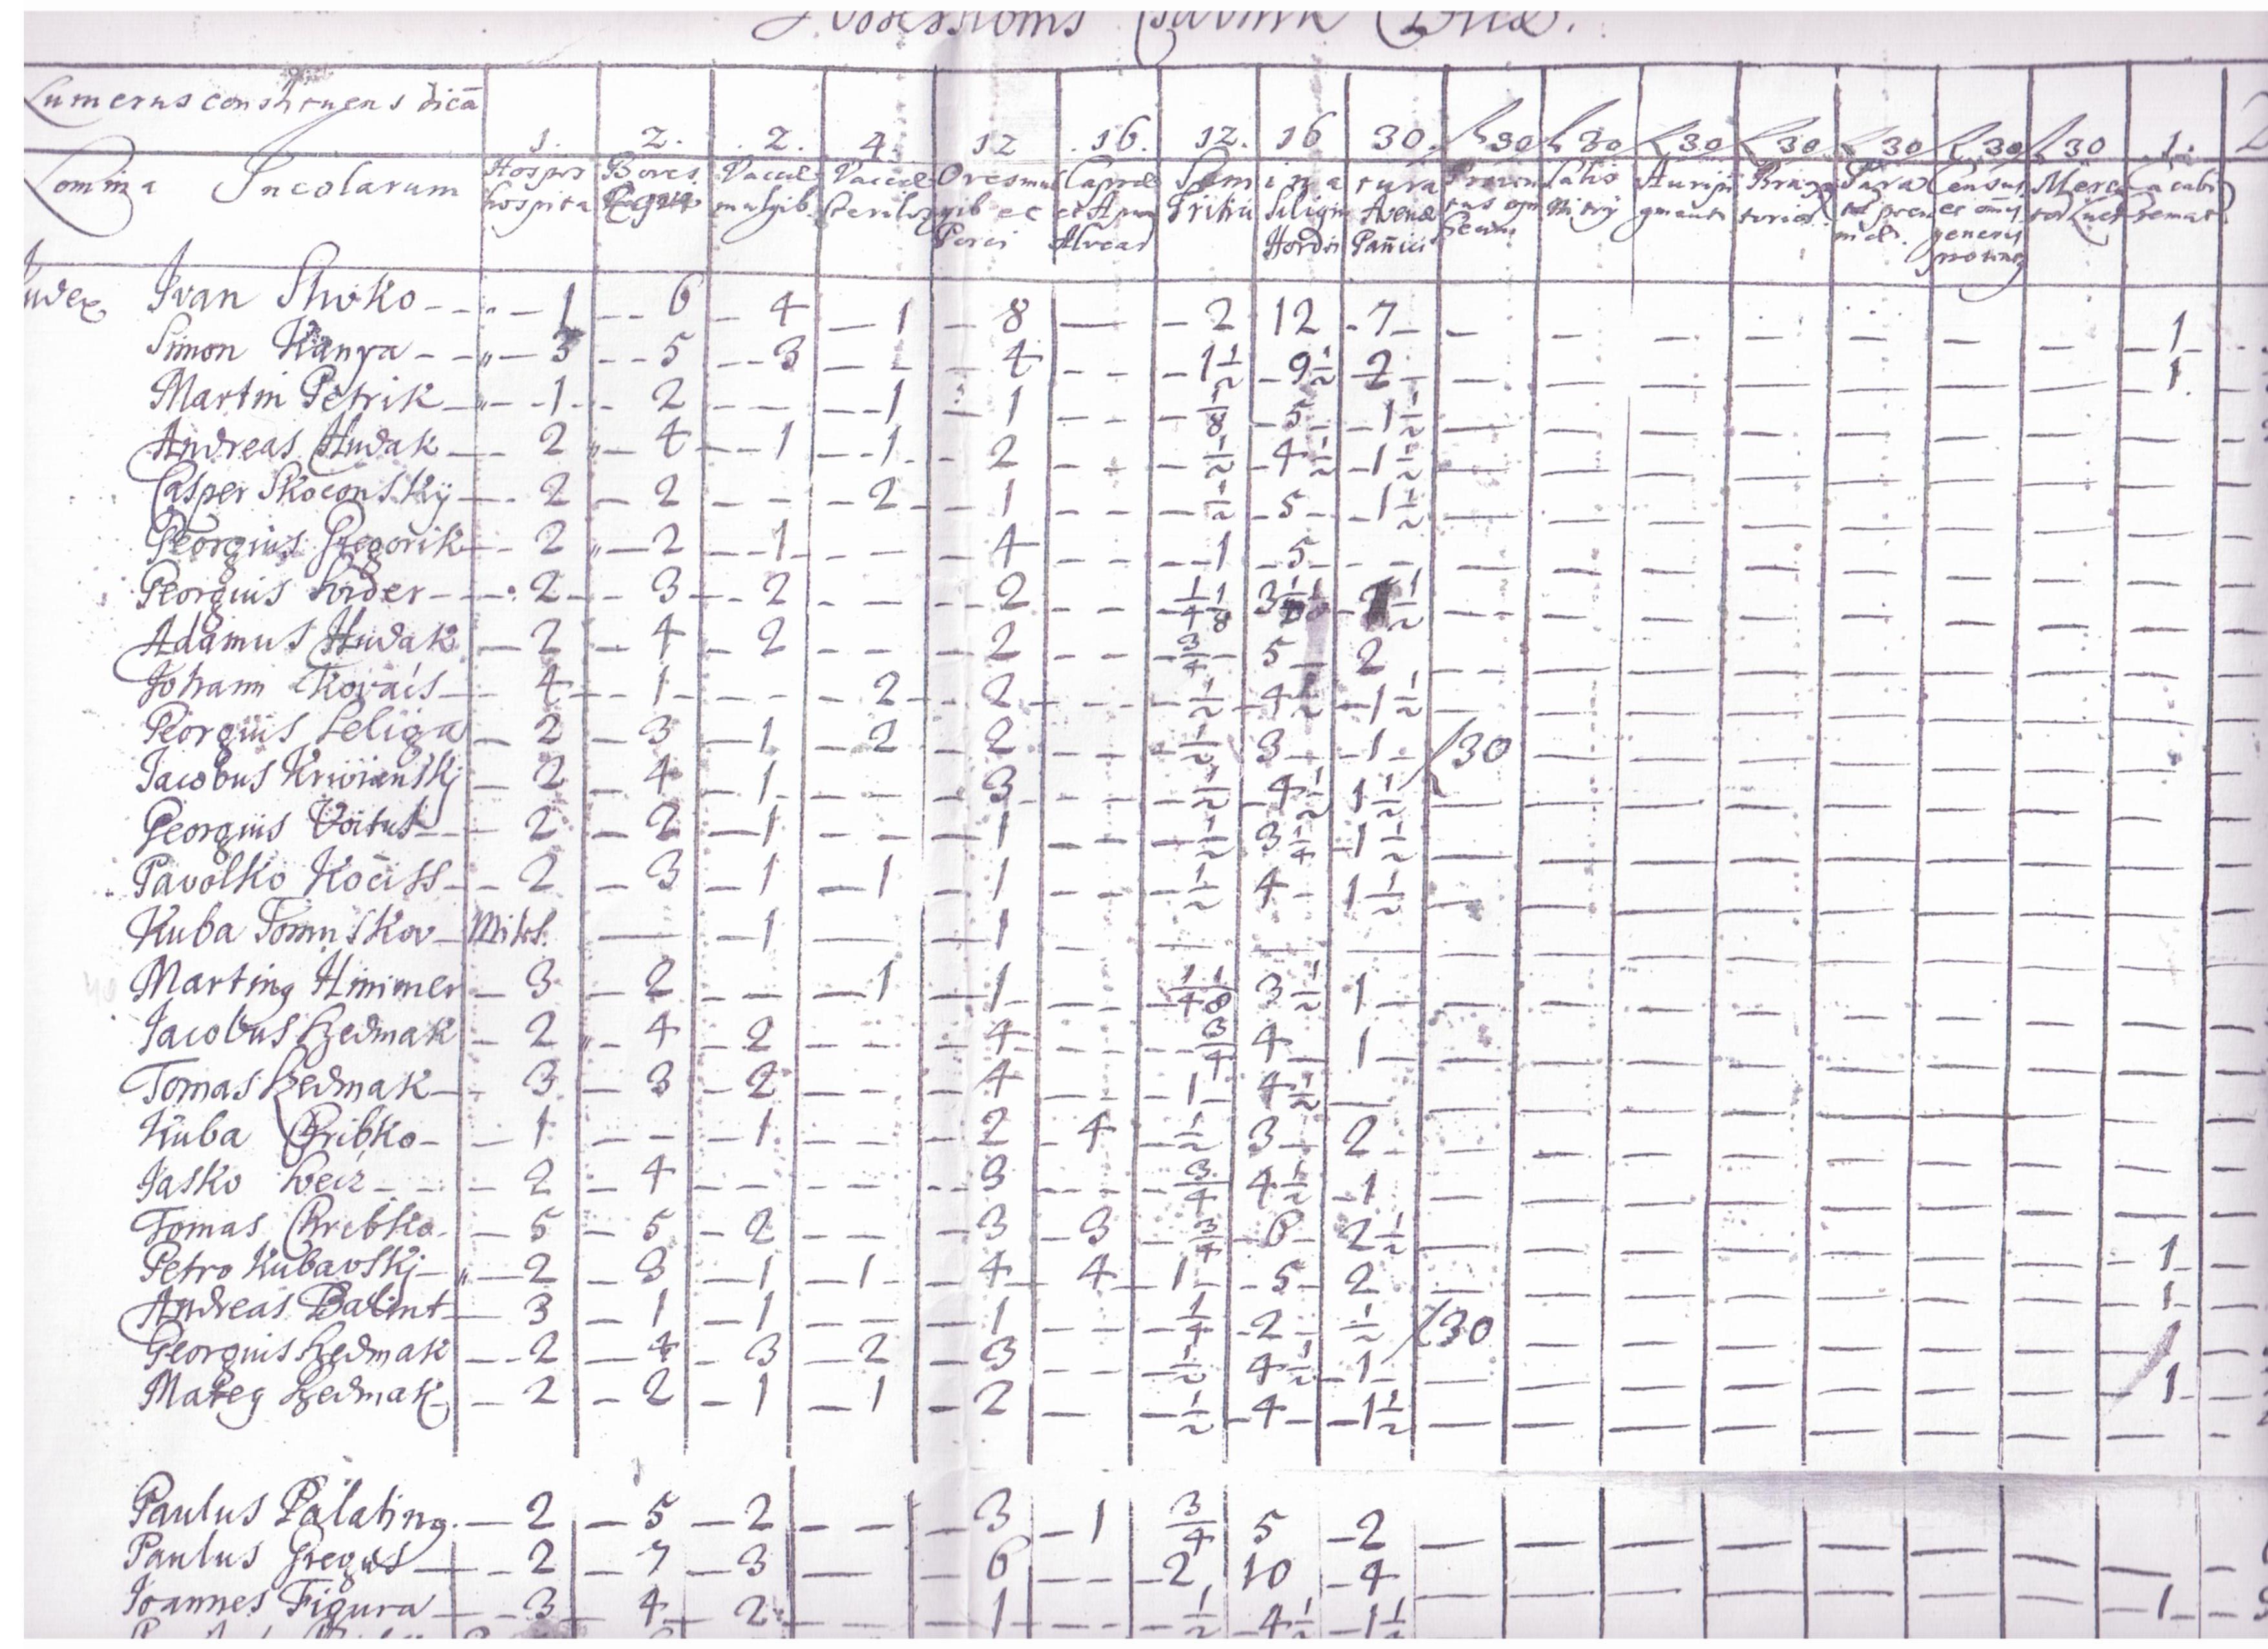 Possessionis
Numerus constituens dicā
1. 2. 2. 4. 12 16. 12. 16 30. 30 30 30 30 30 30 30 1.
Nomina Incolarum Hospes Boves Vaccæ Vaccæ Oves Capræ Semina tura Auripi Census Merca Cacabi
hospita mulgib. et et Tritici Siliginis Avenæ Nitrÿ gmenti
Porci Alvear Hordei Pañici generis
Judex Ivan Shvko 1 6 4 1 8 — 2 12 7 — — — — — — — 1
Simon Kanya 3 5 3 — 4 — 1½ 9½ 2 — — — — — — — 1
Martin Petrik 1 2 — 1 1 — ⅛ 5 1½ — — — — — — —
Andreas Hudak 2 4 1 1 2 — ½ 4½ 1½ — — — — — — —
Casper Skoconskÿ 2 2 — 2 1 — ½ 5 1½ — — — — — — —
Georgius Gregorik 2 2 1 — 4 — 1 5 — — — — — — — —
Georgius 2 3 2 — 2 — ¼ ⅛ 3 ½ — — — — — — —
Adamus Hudak 2 4 2 — 2 — ¾ 5 2 — — — — — — —
Johann Kovács 4 1 — 2 2 — ½ 4½ 1½ — — — — — — —
Georgius Leliga 2 3 1 2 2 — ½ 3 1 30 — — — — — —
Jacobus Kriwianskj 2 4 1 — 3 — ½ 4½ 1½ — — — — — — —
Georgius Voitus 2 2 1 — 1 — ½ 3¼ 1½ — — — — — — —
Pavolko Kociss 2 3 1 1 1 — ½ 4 1½ — — — — — — —
Kuba Tomiskov — 1 — 1 — — — — — — — — — — —
Marting Himmer 3 2 — 1 1 — ¼ ⅛ 3½ 1 — — — — — — —
Jacobus Szedmak 2 4 2 — 4 — ¾ 4 1 — — — — — — —
Tomas Szedmak 3 3 2 — 4 — 1 4½ — — — — — — — —
Kuba Chribko 1 — 1 — 2 4 ½ 3 2 — — — — — — —
Jasko 2 4 — — 3 — ¾ 4½ 1 — — — — — — —
Tomas Chribko 5 5 2 — 3 3 ¾ 6 2½ — — — — — — — 1
Petro Kubavskj 2 3 1 1 4 4 1 5 2 — — — — — — — 1
Andreas Balint 3 1 1 — 1 — ¼ 2 ½ 30 — — — — — — 1
Georgius Szedmak 2 4 3 2 3 — ½ 4½ 1 — — — — — — — 1
Mateg Szedmak 2 2 1 1 2 — ½ 4 1½ — — — — — — —
Paulus Palating 2 5 2 — 3 1 ¾ 5 2 — — — — — — —
Paulus Gregus 2 7 3 — 6 — 2 10 4 — — — — — — —
Joannes Figura 3 4 2 — 1 — ½ 4½ 1½ — — — — — — — 1